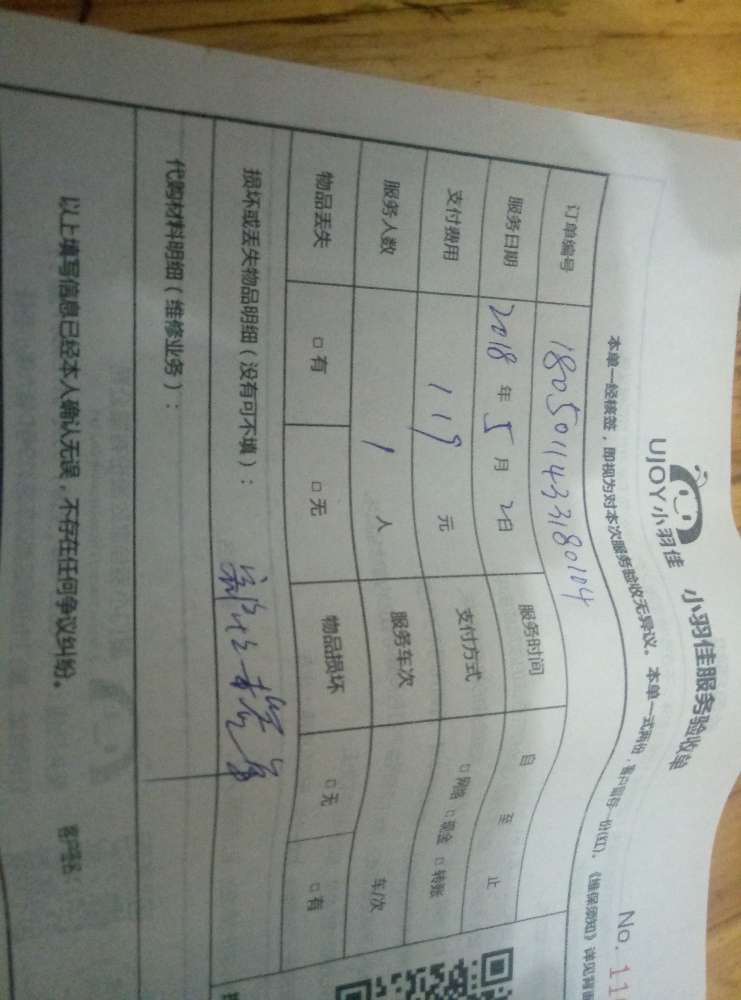 UJOY小羽佳 小羽佳服务验收单 No. 11
本单一经核签，即视为对本次服务验收无异议。本单一式两份，客户留存一份(红)。《维保须知》详见背
订单编号 1805011433180104
服务日期 2018年5月2日 服务时间 自 至 止
支付费用 119元 支付方式 □网络 □现金 □转账
服务人数 1人 服务车次 车/次
物品丢失 □有 □无 物品损坏 □无 □有
损坏或丢失物品明细（没有可不填）：
代购材料明细（维修业务）：
以上填写信息已经本人确认无误，不存在任何争议纠纷。 客户签名